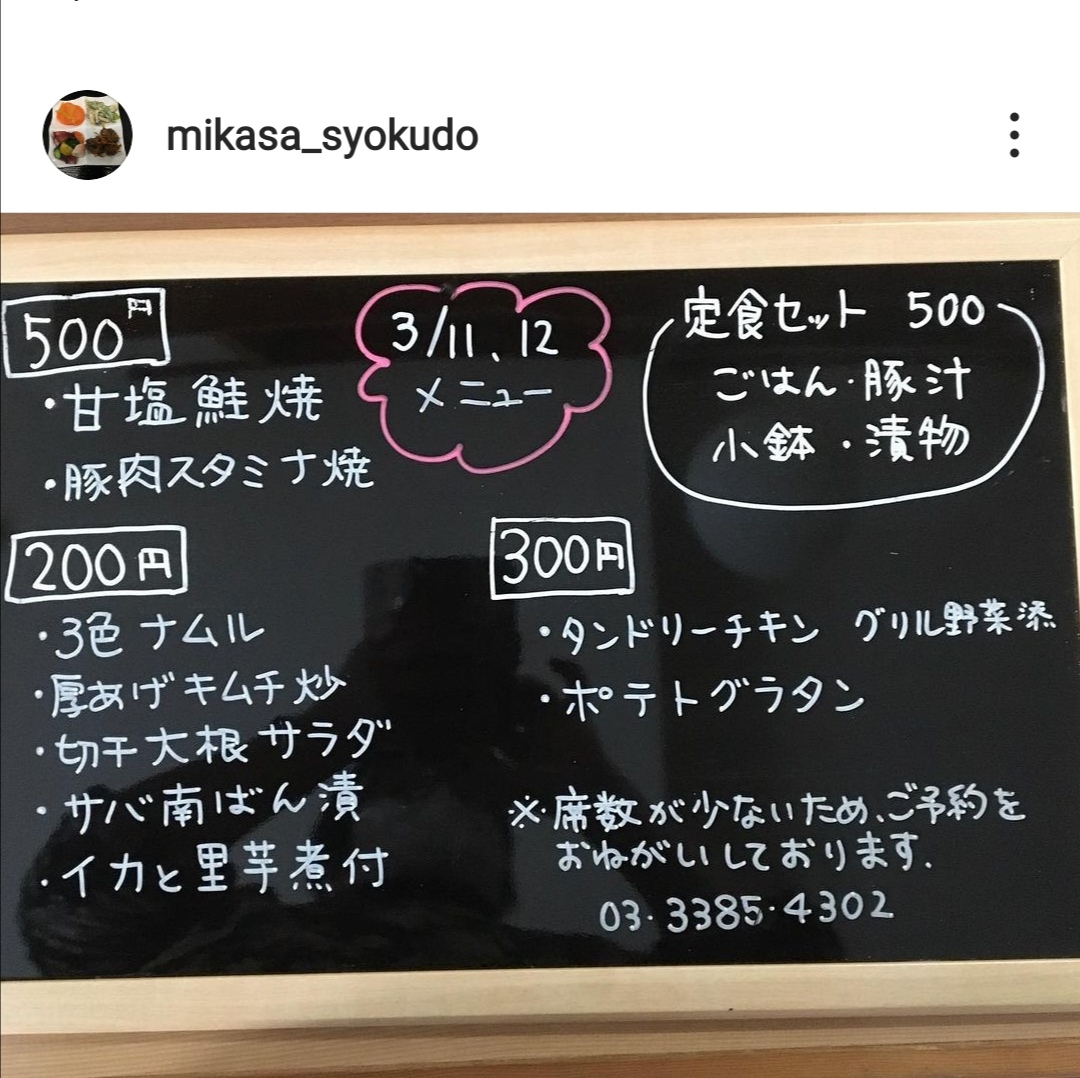 mikasa_syokudo
500円
・甘塩鮭焼
・豚肉スタミナ焼
3/11、12
メニュー
定食セット 500
ごはん・豚汁
小鉢・漬物
200円
・3色ナムル
・厚あげキムチ炒
・切干大根サラダ
・サバ南ばん漬
・イカと里芋煮付
300円
・タンドリーチキン グリル野菜添
・ポテトグラタン
※席数が少ないため、ご予約を
おねがいしております.
03・3385・4302